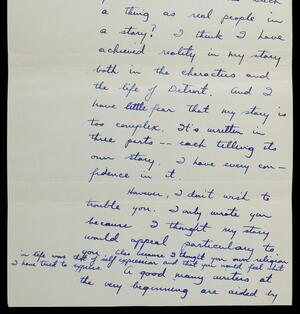 a thing as real people in
a story? I think I have
achieved reality in my story
both in the characters and
the life of Detroit. And I
have little fear that my story is
too complex. It's written in
three parts -- each telling its
own story. I have every con-
fidence in it.
However, I don't wish to
trouble you. I only wrote you
because I thought my story
would appeal particularly to
you. Also because I thought you own religion
in life was that of self expression and that you would feel that
I have tried to express.
A good many writers at
the very beginning are aided by